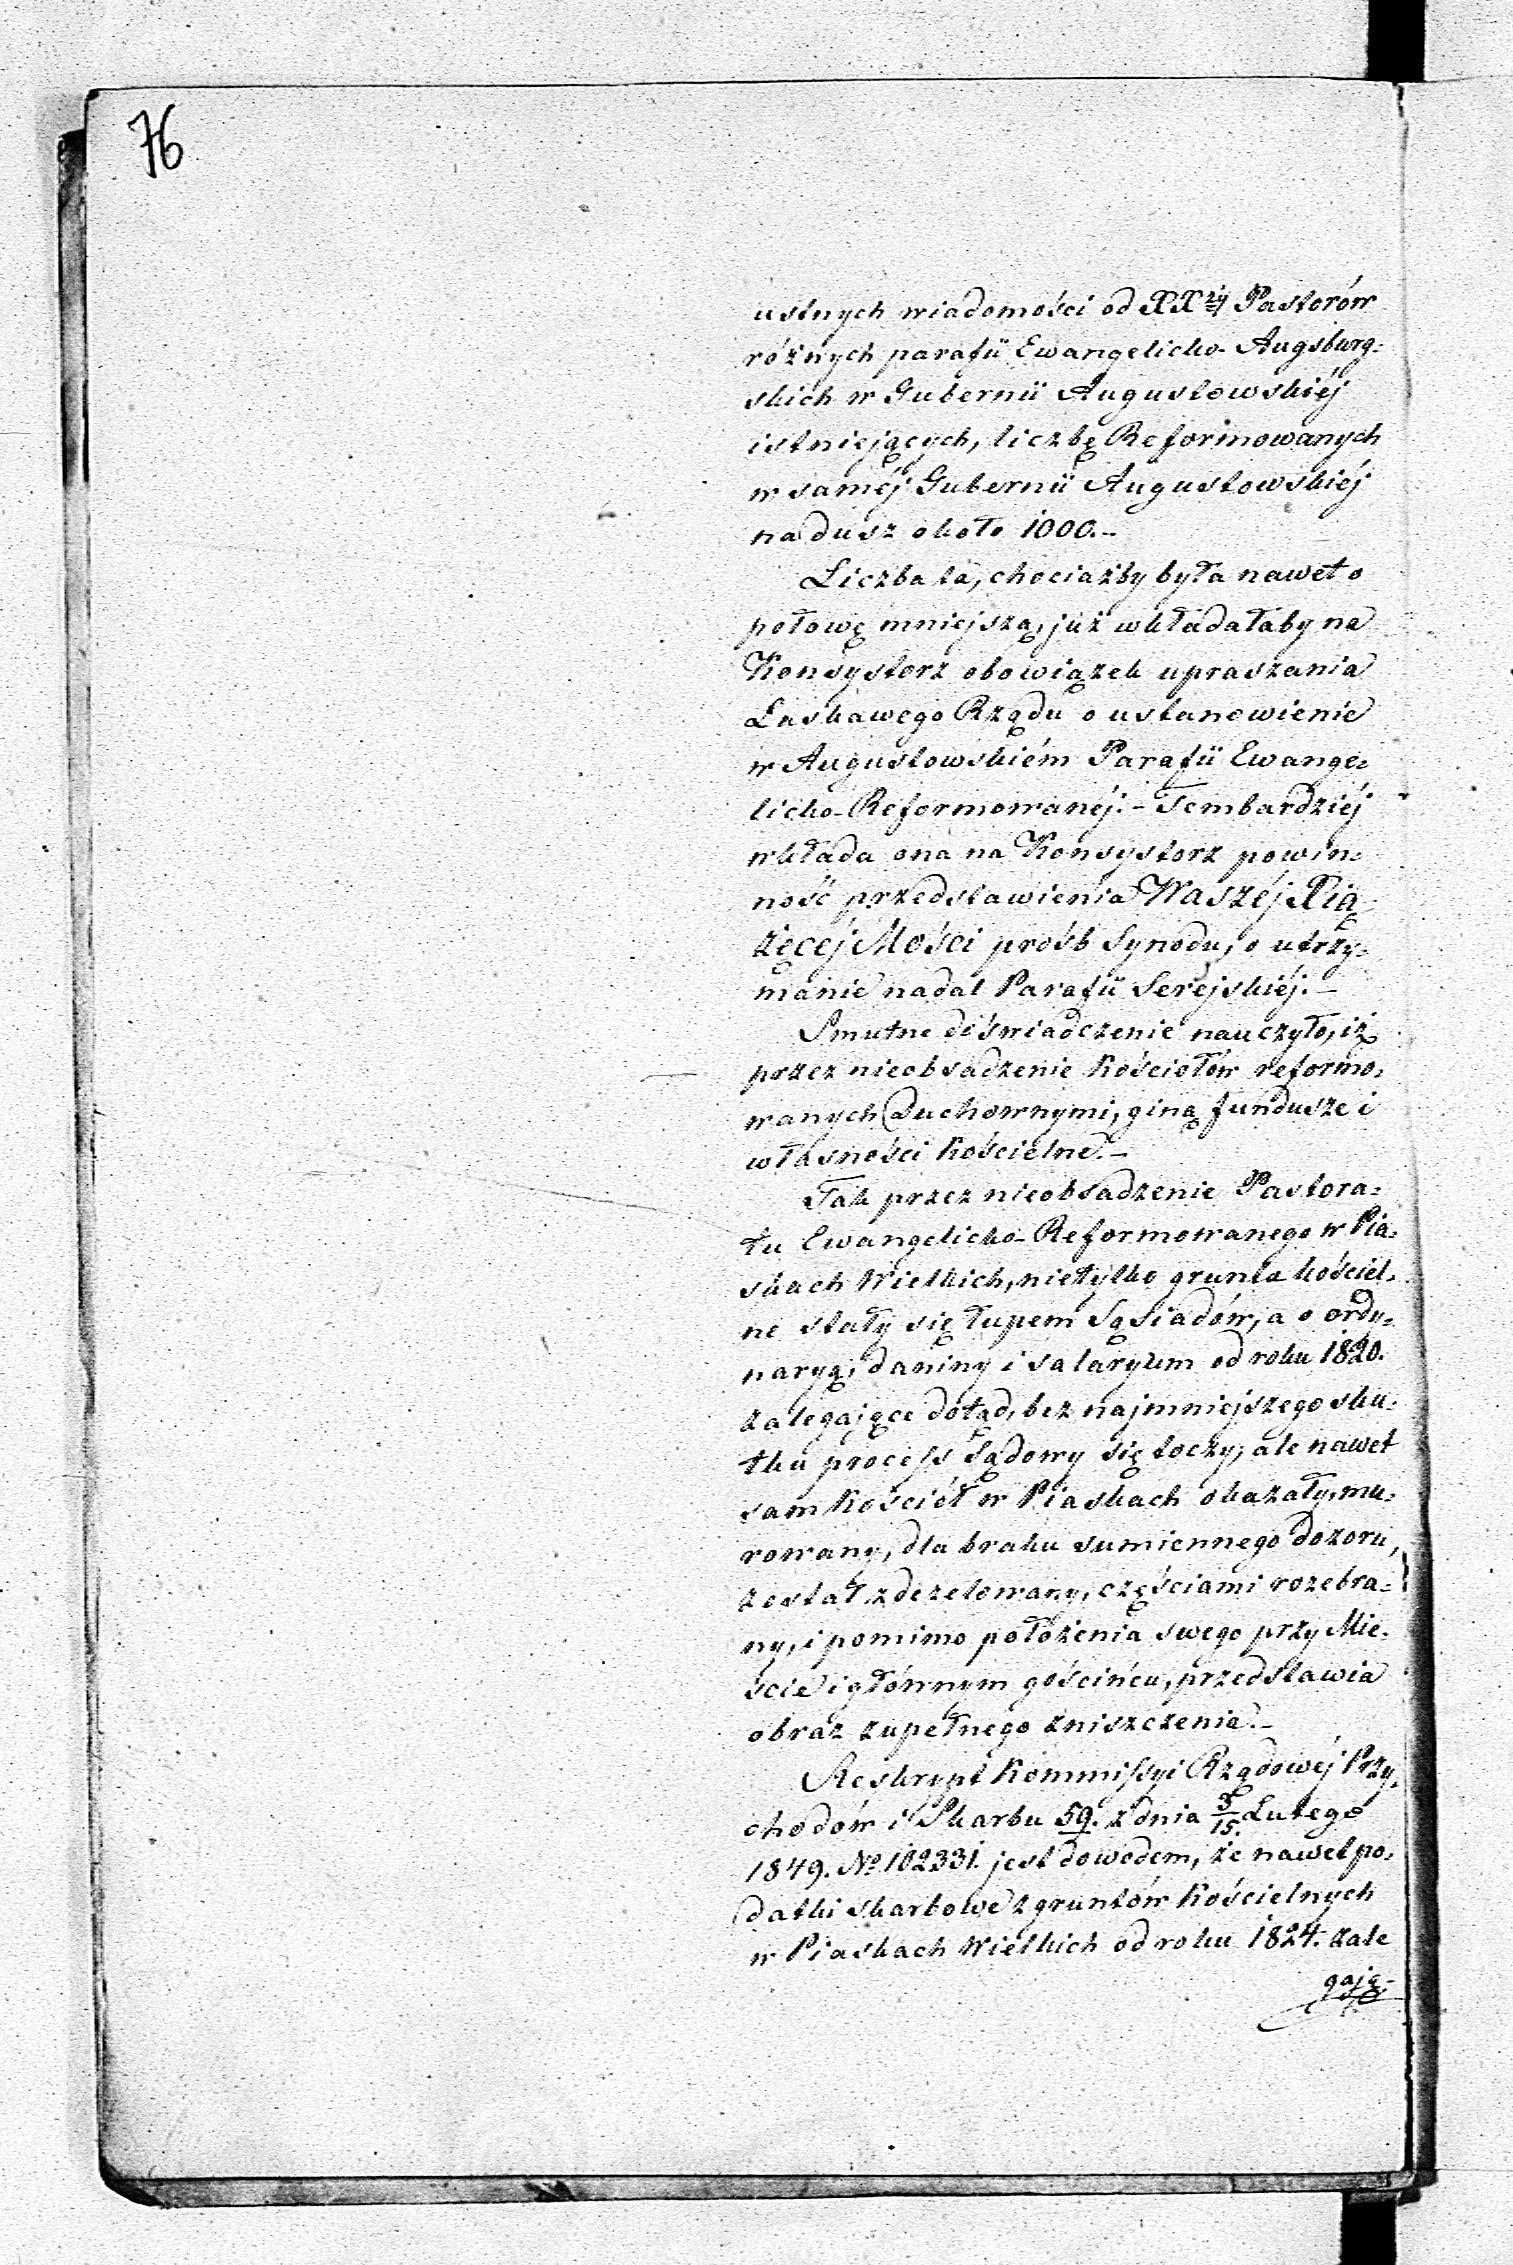 76
ustnych wiadomości od XX<sup>ży</sup> Pastorów
różnych parafii Ewangelicko-Augsburg=
skich w Gubernii Augustowskiéj
istniejących, liczbę Reformowanych
w saméj Gubernii Augustowskiéj
na dusz około 1000.-
Liczba ta, chociażby była nawet o
połowę mniejszą, już wkładałaby na
Konsystorz obowiązek upraszania
Łaskawego Rządu o ustanowienie
w Augustowskiém Parafii Ewange=
licko-Reformowanéj.- Tembardziéj
wkłada ona na Konsystorz powin=
ność przedstawienia Waszéj Xią=
żęcéj Mości prośb Synodu, o utrzy=
manie nadal Parafii Serejskiéj.-
Smutne doświadczenie nauczyło, iż
przez nieobsadzenie Kościołów reformo=
wanych Duchownymi, giną fundusze i
własności Kościelne.-
Tak przez nieobsadzenie Pastora=
tu Ewangelicko-Reformowanego w Pia=
skach Wielkich, nietylko grunta kościel=
ne stały się łupem Sąsiadów, a o ordy=
naryą, daniny i salaryum od roku 1820.
zalegające dotąd, bez najmniejszego sku=
tku process Sądowy się toczy, ale nawet
sam Kościół w Piaskach okazały, mu=
rowany, dla braku sumiennego dozoru,
został zdezelowany, częściami rozebra=
ny, i pomimo położenia swego przy Mie=
ście i głównym gościńcu, przedstawia
obraz zupełnego zniszczenia.-
Reskrypt Kommissyi Rządowéj Przy=
chodów i Skarbu 59. z dnia 3/15. Lutego
1849. No 102331. jest dowodem, że nawet po=
datki skarbowe z gruntów Kościelnych
w Piaskach Wielkich od roku 1824. zale
gają-